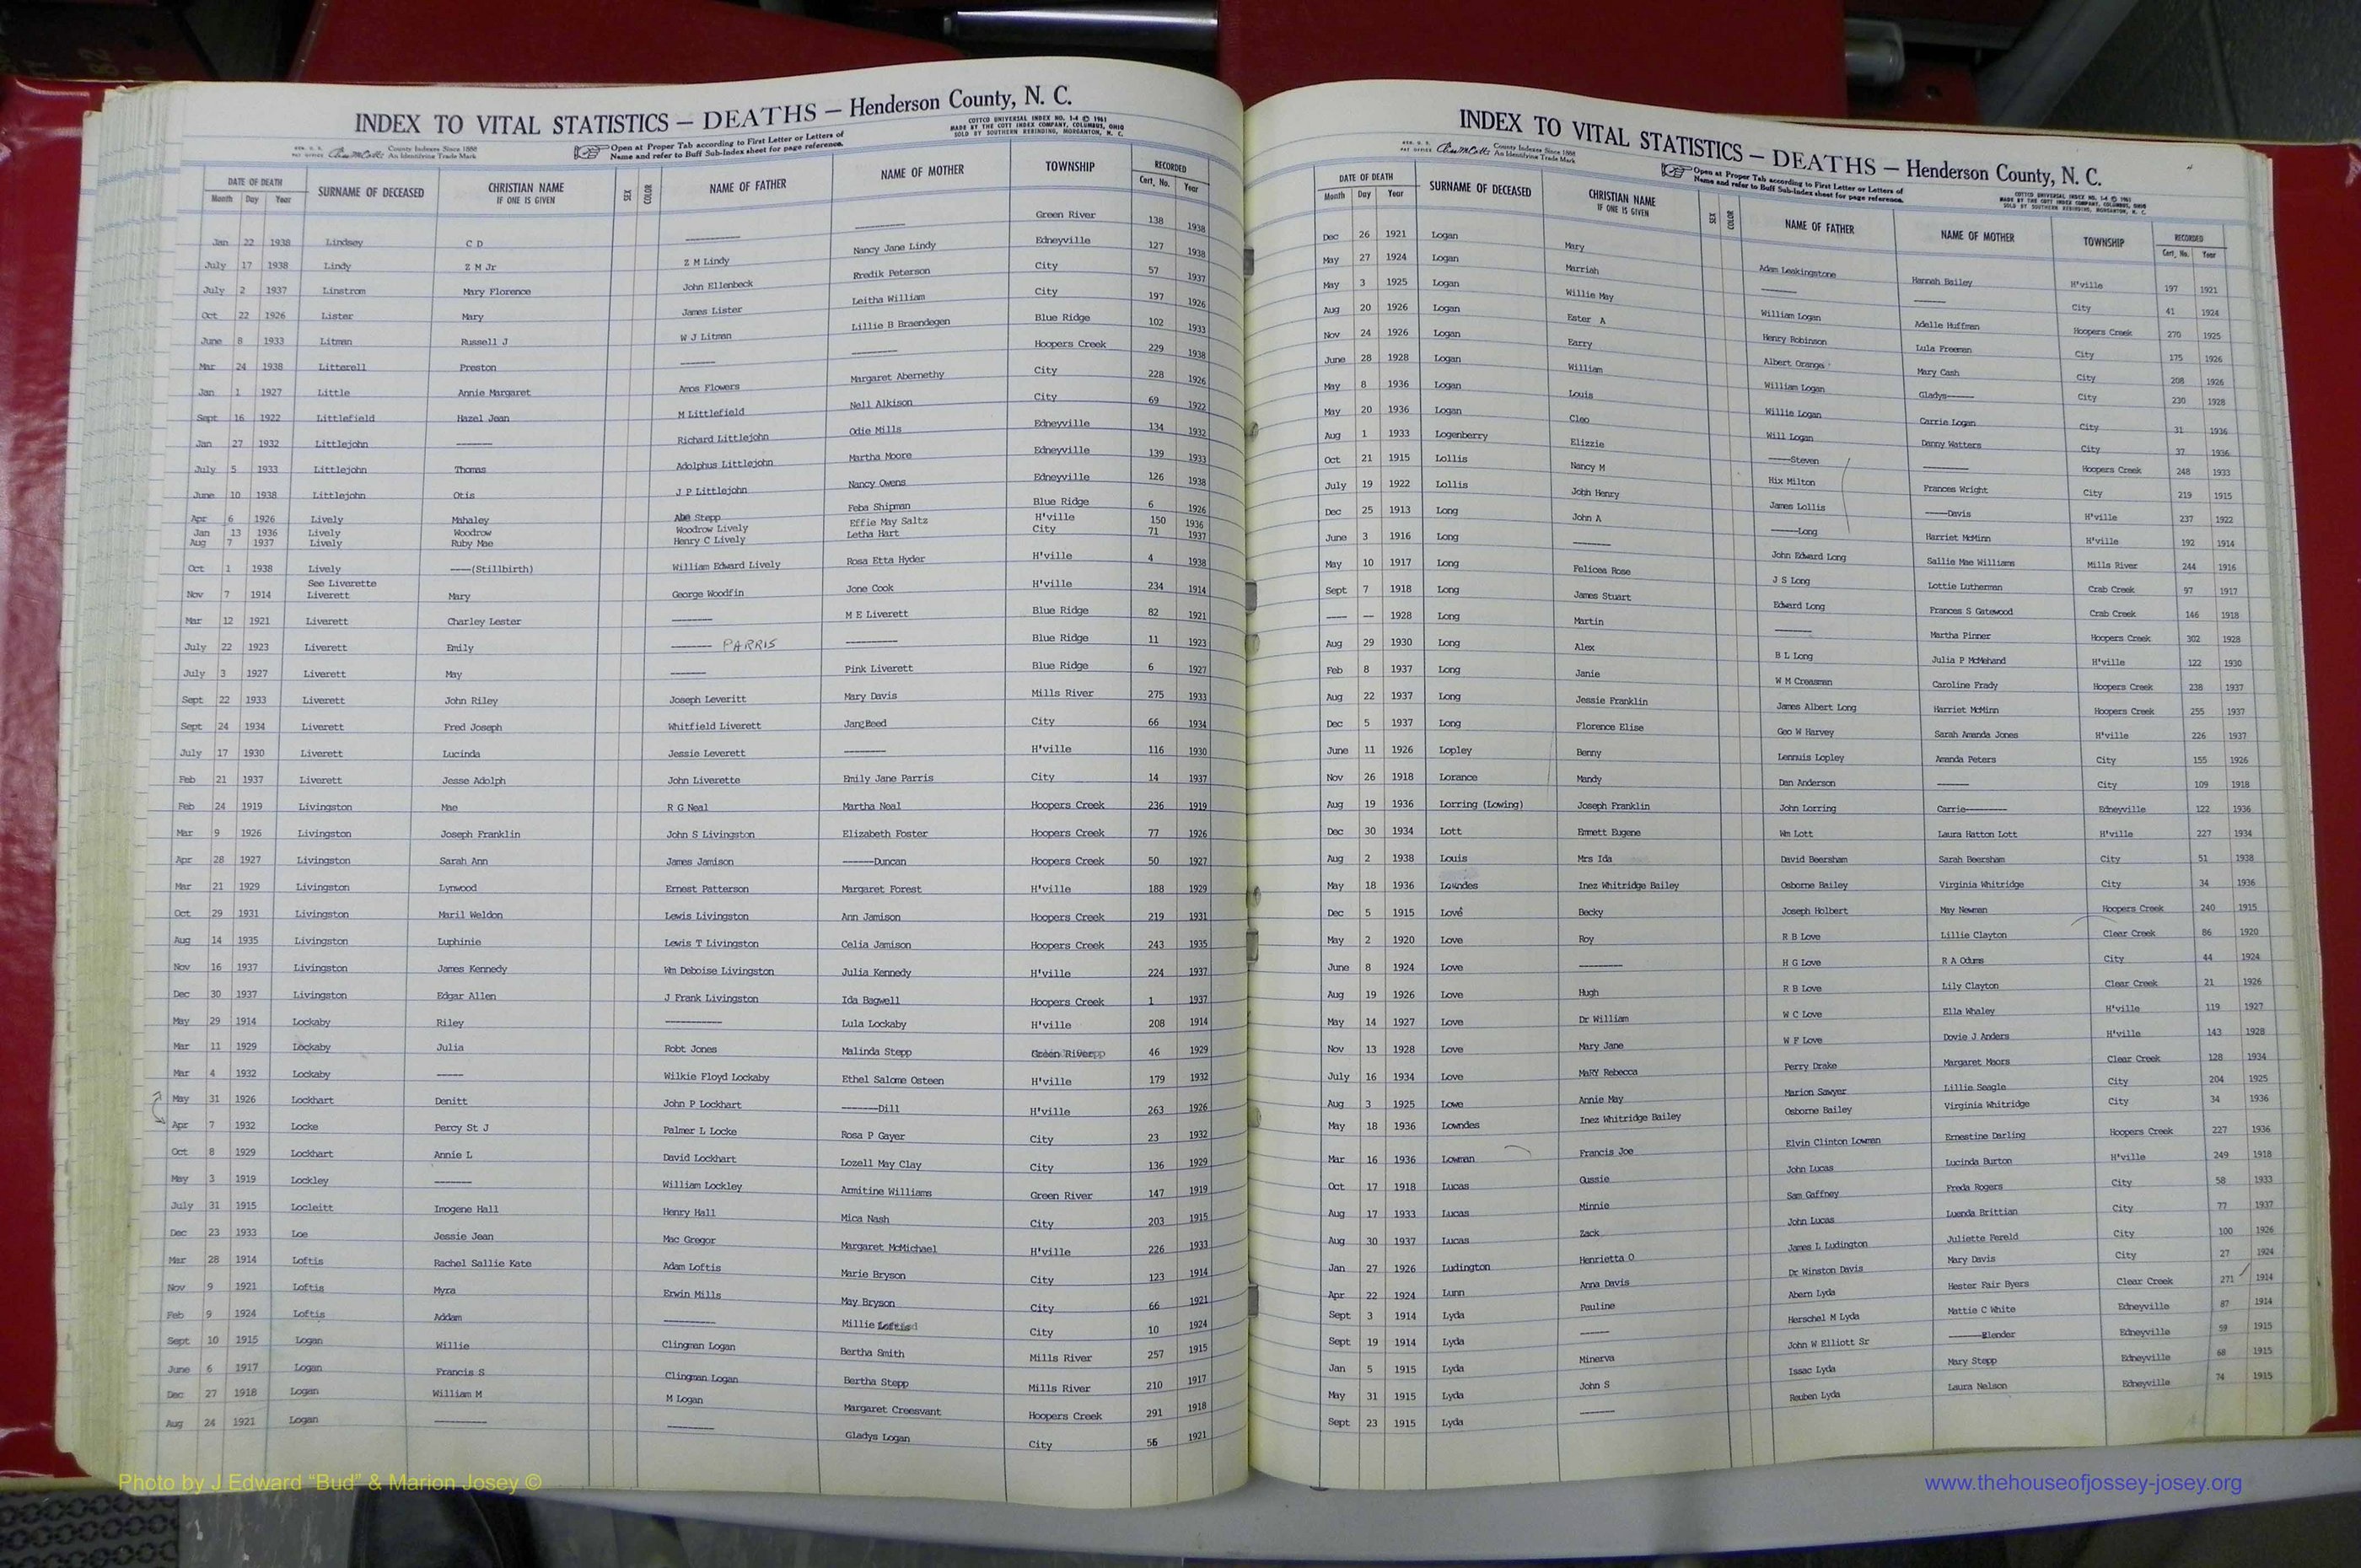 INDEX TO VITAL STATISTICS — DEATHS — Henderson County, N. C.
County Indexes Since 1888
An Identifying Trade Mark
Open at Proper Tab according to First Letter or Letters of
Name and refer to Buff Sub-Index sheet for page reference.
COTTCO UNIVERSAL INDEX NO. 1-4 © 1961
MADE BY THE COTT INDEX COMPANY, COLUMBUS, OHIO
SOLD BY SOUTHERN REBINDING, MORGANTON, N. C.
DATE OF DEATH SURNAME OF DECEASED CHRISTIAN NAME IF ONE IS GIVEN SEX COLOR NAME OF FATHER NAME OF MOTHER TOWNSHIP RECORDED
Month Day Year Cert. No. Year
Jan 22 1938 Lindsey C D ---------- ---------- Green River 138 1938
July 17 1938 Lindy Z M Jr Z M Lindy Nancy Jane Lindy Edneyville 127 1938
July 2 1937 Linstrom Mary Florence John Ellenbeck Fredik Peterson City 57 1937
Oct 22 1926 Lister Mary James Lister Leitha William City 197 1926
June 8 1933 Litman Russell J W J Litman Lillie B Braendegen Blue Ridge 102 1933
Mar 24 1938 Litterell Preston ------ --------- Hoopers Creek 229 1938
Jan 1 1927 Little Annie Margaret Amos Flowers Margaret Abernethy City 228 1926
Sept 16 1922 Littlefield Hazel Jean M Littlefield Nell Alkison City 69 1922
Jan 27 1932 Littlejohn ------ Richard Littlejohn Odie Mills Edneyville 134 1932
July 5 1933 Littlejohn Thomas Adolphus Littlejohn Martha Moore Edneyville 139 1933
June 10 1938 Littlejohn Otis J P Littlejohn Nancy Owens Edneyville 126 1938
Apr 6 1926 Lively Mahaley Abe Stepp Feba Shipman Blue Ridge 6 1926
Jan 13 1936 Lively Woodrow Woodrow Lively Effie May Saltz H'ville 150 1936
Aug 7 1937 Lively Ruby Mae Henry C Lively Letha Hart City 71 1937
Oct 1 1938 Lively ----(Stillbirth) William Edward Lively Rosa Etta Hyder H'ville 4 1938
See Liverette
Nov 7 1914 Liverett Mary George Woodfin Jone Cook H'ville 234 1914
Mar 12 1921 Liverett Charley Lester ------- M E Liverett Blue Ridge 82 1921
July 22 1923 Liverett Emily ------- PARRIS --------- Blue Ridge 11 1923
July 3 1927 Liverett May ------ Pink Liverett Blue Ridge 6 1927
Sept 22 1933 Liverett John Riley Joseph Leveritt Mary Davis Mills River 275 1933
Sept 24 1934 Liverett Fred Joseph Whitfield Liverett Jane Reed City 66 1934
July 17 1930 Liverett Lucinda Jessie Leverett ------- H'ville 116 1930
Feb 21 1937 Liverett Jesse Adolph John Liverette Emily Jane Parris City 14 1937
Feb 24 1919 Livingston Mae R G Neal Martha Neal Hoopers Creek 236 1919
Mar 9 1926 Livingston Joseph Franklin John S Livingston Elizabeth Foster Hoopers Creek 77 1926
Apr 28 1927 Livingston Sarah Ann James Jamison ------Duncan Hoopers Creek 50 1927
Mar 21 1929 Livingston Lynwood Ernest Patterson Margaret Forest H'ville 188 1929
Oct 29 1931 Livingston Maril Weldon Lewis Livingston Ann Jamison Hoopers Creek 219 1931
Aug 14 1935 Livingston Luphinie Lewis T Livingston Celia Jamison Hoopers Creek 243 1935
Nov 16 1937 Livingston James Kennedy Wm Deboise Livingston Julia Kennedy H'ville 224 1937
Dec 30 1937 Livingston Edgar Allen J Frank Livingston Ida Bagwell Hoopers Creek 1 1937
May 29 1914 Lockaby Riley ---------- Lula Lockaby H'ville 208 1914
Mar 11 1929 Lockaby Julia Robt Jones Malinda Stepp Green River 46 1929
Mar 4 1932 Lockaby ----- Wilkie Floyd Lockaby Ethel Salome Osteen H'ville 179 1932
May 31 1926 Lockhart Denitt John P Lockhart -------Dill H'ville 263 1926
Apr 7 1932 Locke Percy St J Palmer L Locke Rosa P Gayer City 23 1932
Oct 8 1929 Lockhart Annie L David Lockhart Lozell May Clay City 136 1929
May 3 1919 Lockley ------- William Lockley Armitine Williams Green River 147 1919
July 31 1915 Locleitt Imogene Hall Henry Hall Mica Nash City 203 1915
Dec 23 1933 Loe Jessie Jean Mac Gregor Margaret McMichael H'ville 226 1933
Mar 28 1914 Loftis Rachel Sallie Kate Adam Loftis Marie Bryson City 123 1914
Nov 9 1921 Loftis Myra Erwin Mills May Bryson City 66 1921
Feb 9 1924 Loftis Addam --------- Millie Loftis City 10 1924
Sept 10 1915 Logan Willie Clingman Logan Bertha Smith Mills River 257 1915
June 6 1917 Logan Francis S Clingman Logan Bertha Stepp Mills River 210 1917
Dec 27 1918 Logan William M M Logan Margaret Creesvant Hoopers Creek 291 1918
Aug 24 1921 Logan --------- -------- Gladys Logan City 56 1921
INDEX TO VITAL STATISTICS — DEATHS — Henderson County, N. C.
County Indexes Since 1888
An Identifying Trade Mark
Open at Proper Tab according to First Letter or Letters of
Name and refer to Buff Sub-Index sheet for page reference.
COTTCO UNIVERSAL INDEX NO. 1-4 © 1961
MADE BY THE COTT INDEX COMPANY, COLUMBUS, OHIO
SOLD BY SOUTHERN REBINDING, MORGANTON, N. C.
DATE OF DEATH SURNAME OF DECEASED CHRISTIAN NAME IF ONE IS GIVEN SEX COLOR NAME OF FATHER NAME OF MOTHER TOWNSHIP RECORDED
Month Day Year Cert. No. Year
Dec 26 1921 Logan Mary Adam Leakingstone Hannah Bailey H'ville 197 1921
May 27 1924 Logan Marriah ------ ------ City 41 1924
May 3 1925 Logan Willie May William Logan Adelle Huffman Hoopers Creek 270 1925
Aug 20 1926 Logan Ester A Henry Robinson Lula Freeman City 175 1926
Nov 24 1926 Logan Earry Albert Orange Mary Cash City 208 1926
June 28 1928 Logan William William Logan Gladys----- City 230 1928
May 8 1936 Logan Louis Willie Logan Carrie Logan City 31 1936
May 20 1936 Logan Cleo Will Logan Danny Watters City 37 1936
Aug 1 1933 Logenberry Elizzie ----Steven -------- Hoopers Creek 248 1933
Oct 21 1915 Lollis Nancy M Hix Milton Frances Wright City 219 1915
July 19 1922 Lollis John Henry James Lollis ----Davis H'ville 237 1922
Dec 25 1913 Long John A ----Long Harriet McMinn H'ville 192 1914
June 3 1916 Long ------- John Edward Long Sallie Mae Williams Mills River 244 1916
May 10 1917 Long Felicea Rose J S Long Lottie Lutherman Crab Creek 97 1917
Sept 7 1918 Long James Stuart Edward Long Frances S Gatewood Crab Creek 146 1918
---- -- 1928 Long Martin ------ Martha Pinner Hoopers Creek 302 1928
Aug 29 1930 Long Alex B L Long Julia P McMehand H'ville 122 1930
Feb 8 1937 Long Janie W M Creasman Caroline Frady Hoopers Creek 238 1937
Aug 22 1937 Long Jessie Franklin James Albert Long Harriet McMinn Hoopers Creek 255 1937
Dec 5 1937 Long Florence Elise Geo W Harvey Sarah Amanda Jones H'ville 226 1937
June 11 1926 Lopley Benny Lennuis Lopley Amanda Peters City 155 1926
Nov 26 1918 Lorance Mandy Dan Anderson ------ City 109 1918
Aug 19 1936 Lorring (Lowing) Joseph Franklin John Lorring Carrie-------- Edneyville 122 1936
Dec 30 1934 Lott Emmett Eugene Wm Lott Laura Hatton Lott H'ville 227 1934
Aug 2 1938 Louis Mrs Ida David Beersham Sarah Beersham City 51 1938
May 18 1936 Lowndes Inez Whitridge Bailey Osborne Bailey Virginia Whitridge City 34 1936
Dec 5 1915 Love Becky Joseph Holbert May Newman Hoopers Creek 240 1915
May 2 1920 Love Roy R B Love Lillie Clayton Clear Creek 86 1920
June 8 1924 Love -------- H G Love R A Odums City 44 1924
Aug 19 1926 Love Hugh R B Love Lily Clayton Clear Creek 21 1926
May 14 1927 Love Dr William W C Love Ella Whaley H'ville 119 1927
Nov 13 1928 Love Mary Jane W F Love Dovie J Anders H'ville 143 1928
July 16 1934 Love MaRY Rebecca Perry Drake Margaret Maors Clear Creek 128 1934
Aug 3 1925 Lowe Annie May Marion Sawyer Lillie Seagle City 204 1925
May 18 1936 Lowndes Inez Whitridge Bailey Osborne Bailey Virginia Whitridge City 34 1936
Mar 16 1936 Lowman Francis Joe Elvin Clinton Lowman Ernestine Darling Hoopers Creek 227 1936
Oct 17 1918 Lucas Gussie John Lucas Lucinda Burton H'ville 249 1918
Aug 17 1933 Lucas Minnie Sam Gaffney Freda Rogers City 58 1933
Aug 30 1937 Lucas Zack John Lucas Luenda Brittian City 77 1937
Jan 27 1926 Ludington Henrietta O James L Ludington Juliette Fereld City 100 1926
Apr 22 1924 Lunn Anna Davis Dr Winston Davis Mary Davis City 27 1924
Sept 3 1914 Lyda Pauline Abern Lyda Hester Fair Byers Clear Creek 271 1914
Sept 19 1914 Lyda ------ Herschel M Lyda Mattie C White Edneyville 87 1914
Jan 5 1915 Lyda Minerva John W Elliott Sr ------Elender Edneyville 59 1915
May 31 1915 Lyda John S Issac Lyda Mary Stepp Edneyville 68 1915
Sept 23 1915 Lyda ------ Reuben Lyda Laura Nelson Edneyville 74 1915
Photo by J Edward “Bud” & Marion Josey ©
www.thehouseofjossey-josey.org